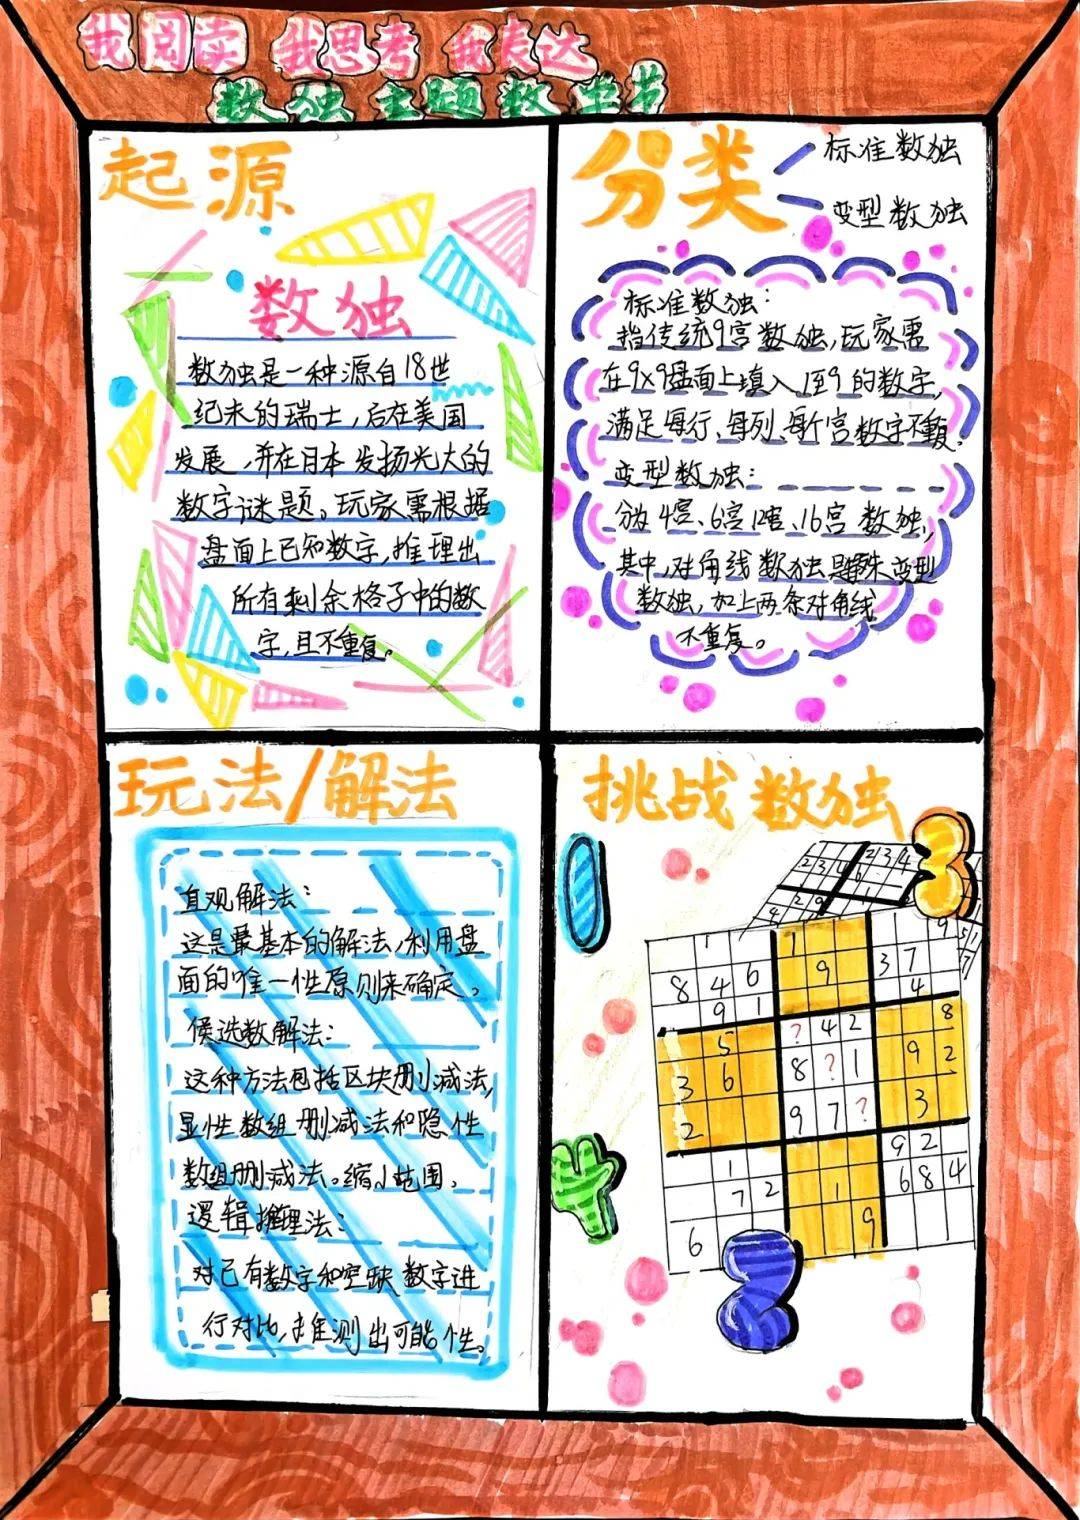 我阅读 我思考 我表达
数独主题数学节
起源
数独
数独是一种源自18世
纪末的瑞士，后在美国
发展，并在日本发扬光大的
数字谜题。玩家需根据
盘面上已知数字，推理出
所有剩余格子中的数
字，且不重复。
分类
标准数独
变型数独
标准数独：
指传统9宫数独，玩家需
在9×9盘面上填入1至9的数字，
满足每行、每列、每个宫数字不重复。
变型数独：
分为4宫、6宫12宫、16宫数独，
其中，对角线数独是特殊变型
数独，加上两条对角线
不重复。
玩法/解法
直观解法：
这是最基本的解法，利用盘
面的唯一性原则来确定。
候选数解法：
这种方法包括区块删减法，
显性数组删减法和隐性
数组删减法。缩小范围，
逻辑推理法：
对已有数字和空缺数字进
行对比，推测出可能性。
挑战数独
1 1 9
8 4 6 9 3 7
9 1 4
5 ? 4 2 8
3 6 8 ? 1 9 2
2 9 7 ? 3
1 9 2
7 2 1 6 8 4
6 9